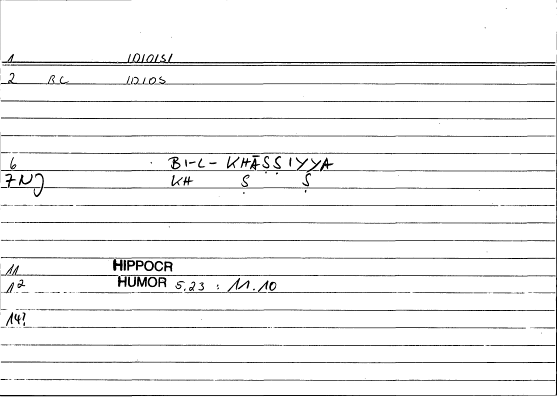 1 IDIOISI
2 BC IDIOS
6 BI-L-KHĀṢṢIYYA
7 NJ KH Ṣ Ṣ
11 HIPPOCR
12 HUMOR 5.23 : 11.10
14?